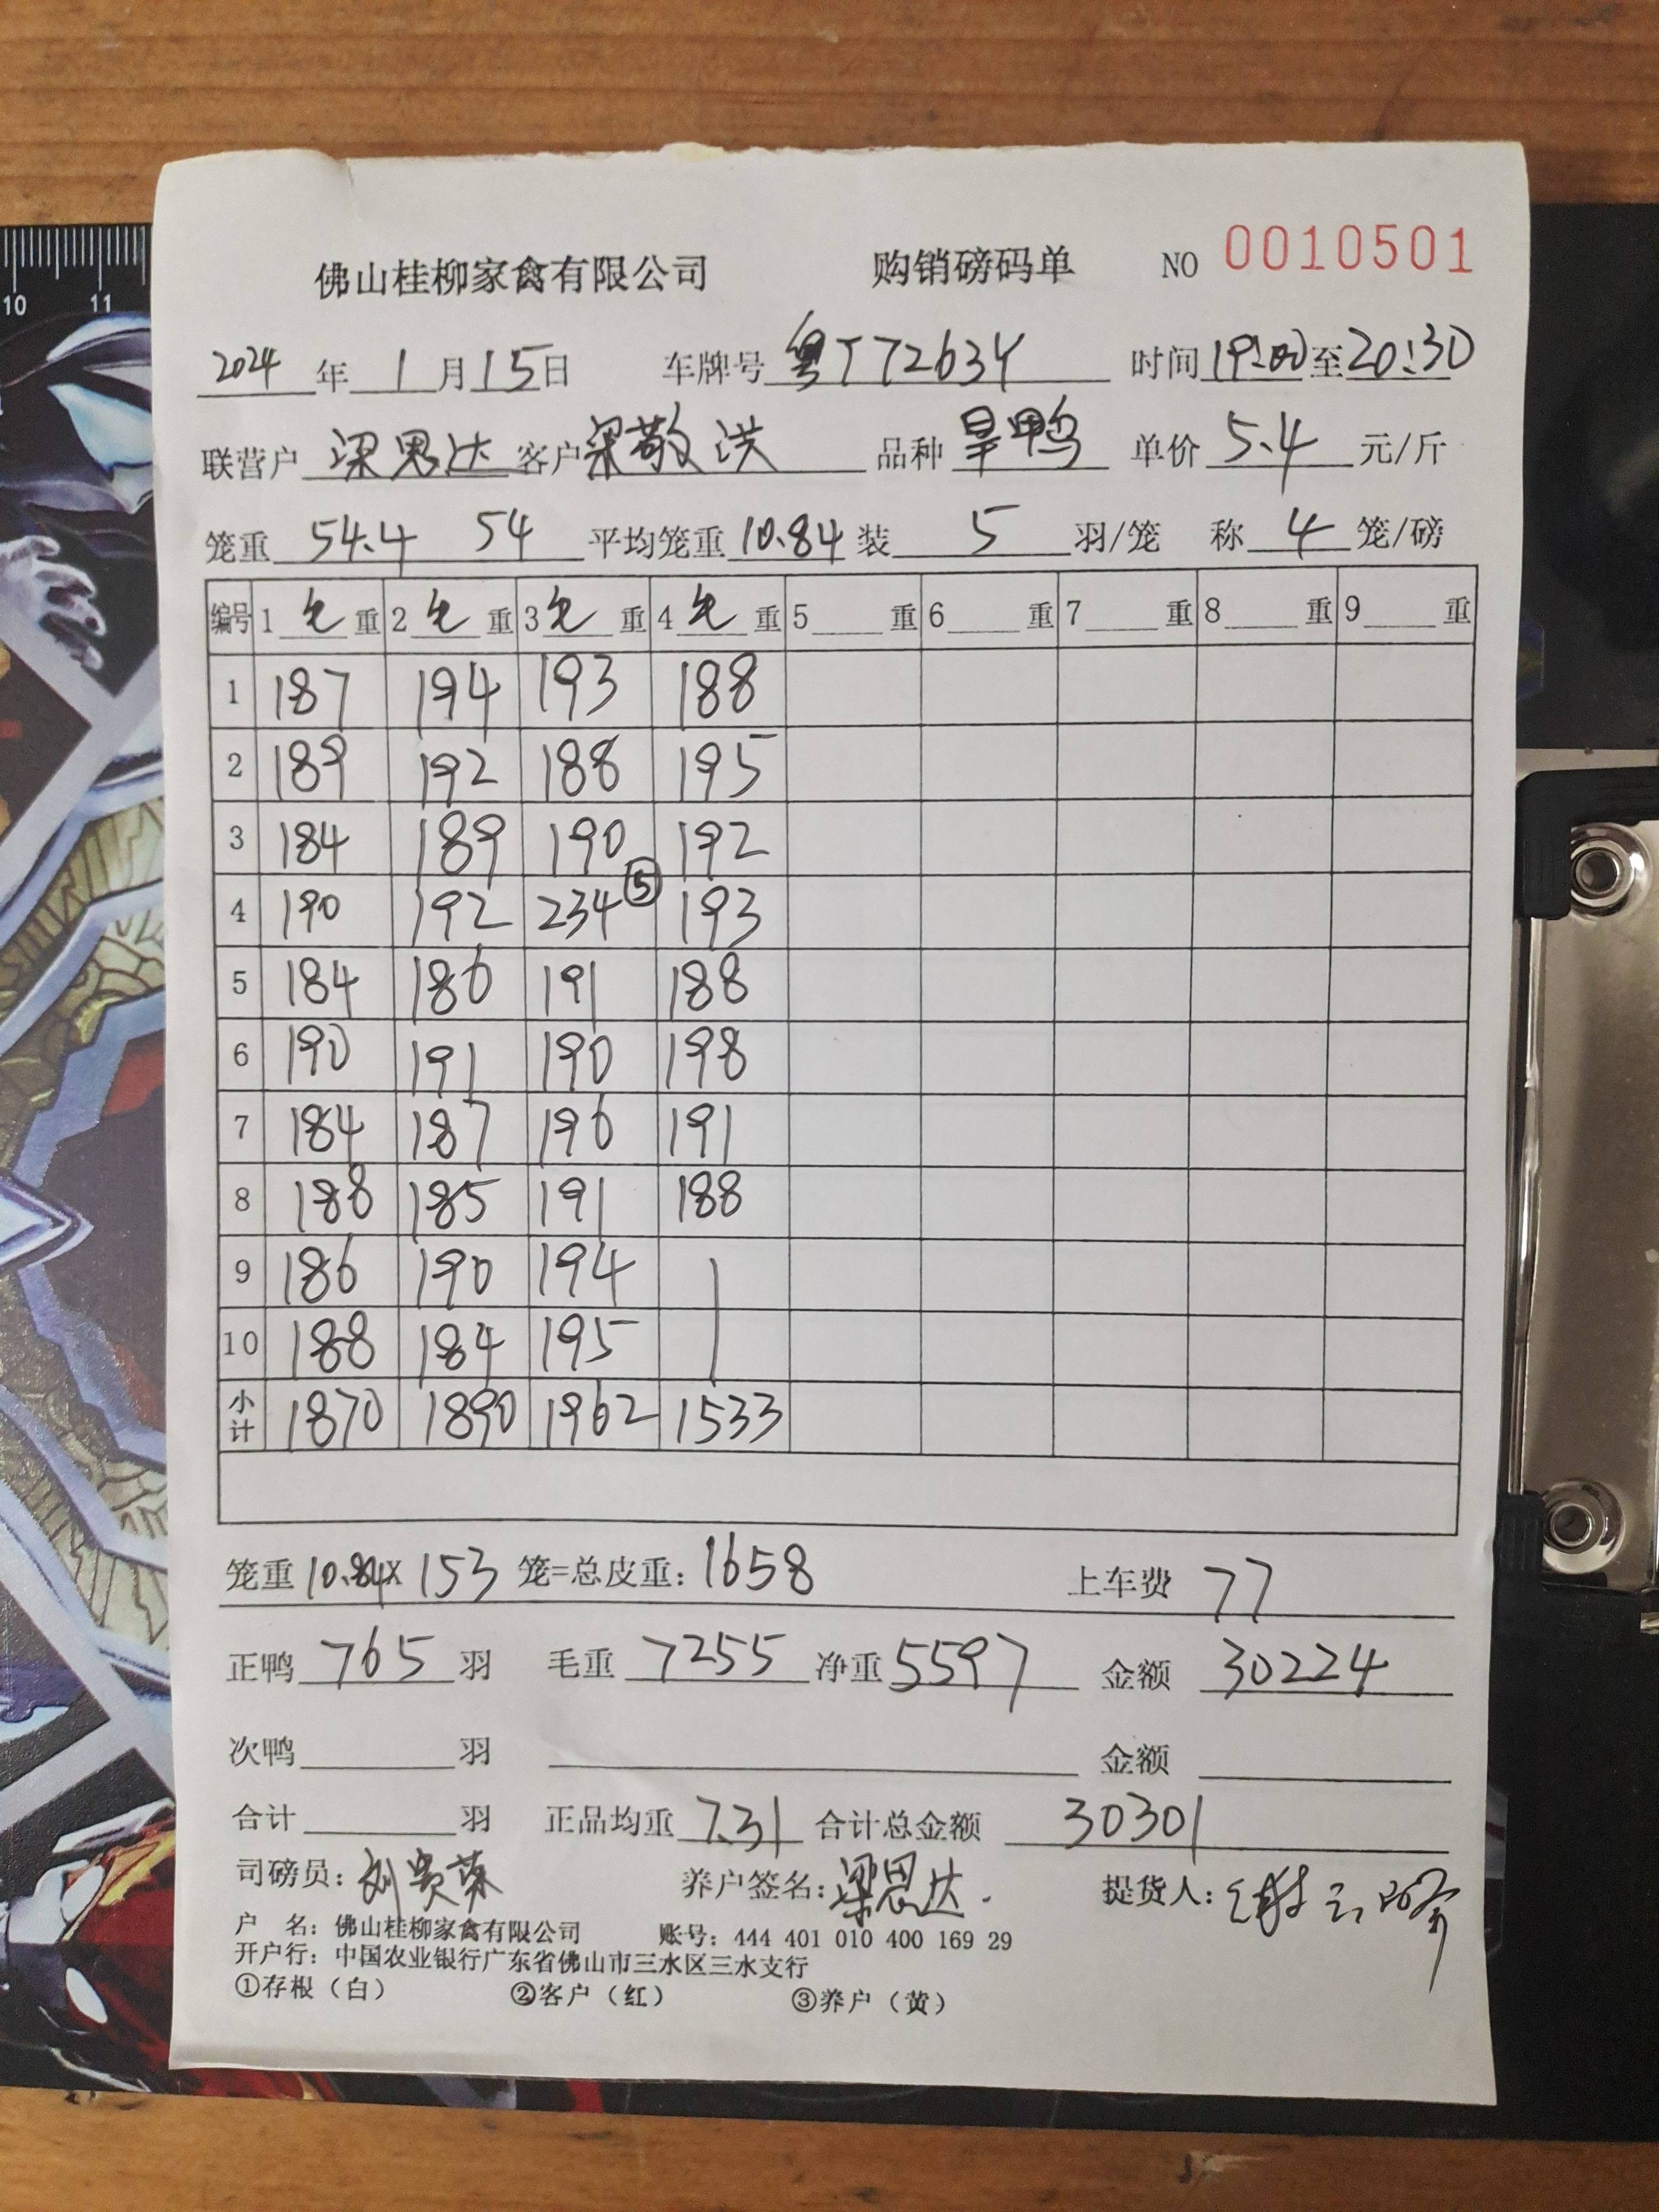 佛山桂柳家禽有限公司 购销磅码单 NO 0010501
2024 年 1 月 15 日 车牌号 粤T7263Y 时间 19:00 至 20:30
联营户 梁思达 客户 梁敬洪 品种 旱鸭 单价 5.4 元/斤
笼重 54.4 54 平均笼重 10.84 装 5 羽/笼 称 4 笼/磅
编号 1 毛 重 2 毛 重 3 毛 重 4 毛 重 5 重 6 重 7 重 8 重 9 重
1 187 194 193 188
2 189 192 188 195
3 184 189 190 192
4 190 192 234 ⑤ 193
5 184 186 191 188
6 190 191 190 198
7 184 187 196 191
8 188 185 191 188
9 186 190 194
10 188 184 195
小计 1870 1890 1962 1533
笼重 10.84× 153 笼=总皮重: 1658 上车费 77
正鸭 765 羽 毛重 7255 净重 5597 金额 30224
次鸭 羽 金额
合计 羽 正品均重 7.31 合计总金额 30301
司磅员: 刘 养户签名: 梁思达. 提货人: 谢
户 名: 佛山桂柳家禽有限公司 账号: 444 401 010 400 169 29
开户行: 中国农业银行广东省佛山市三水区三水支行
①存根（白） ②客户（红） ③养户（黄）
10 11